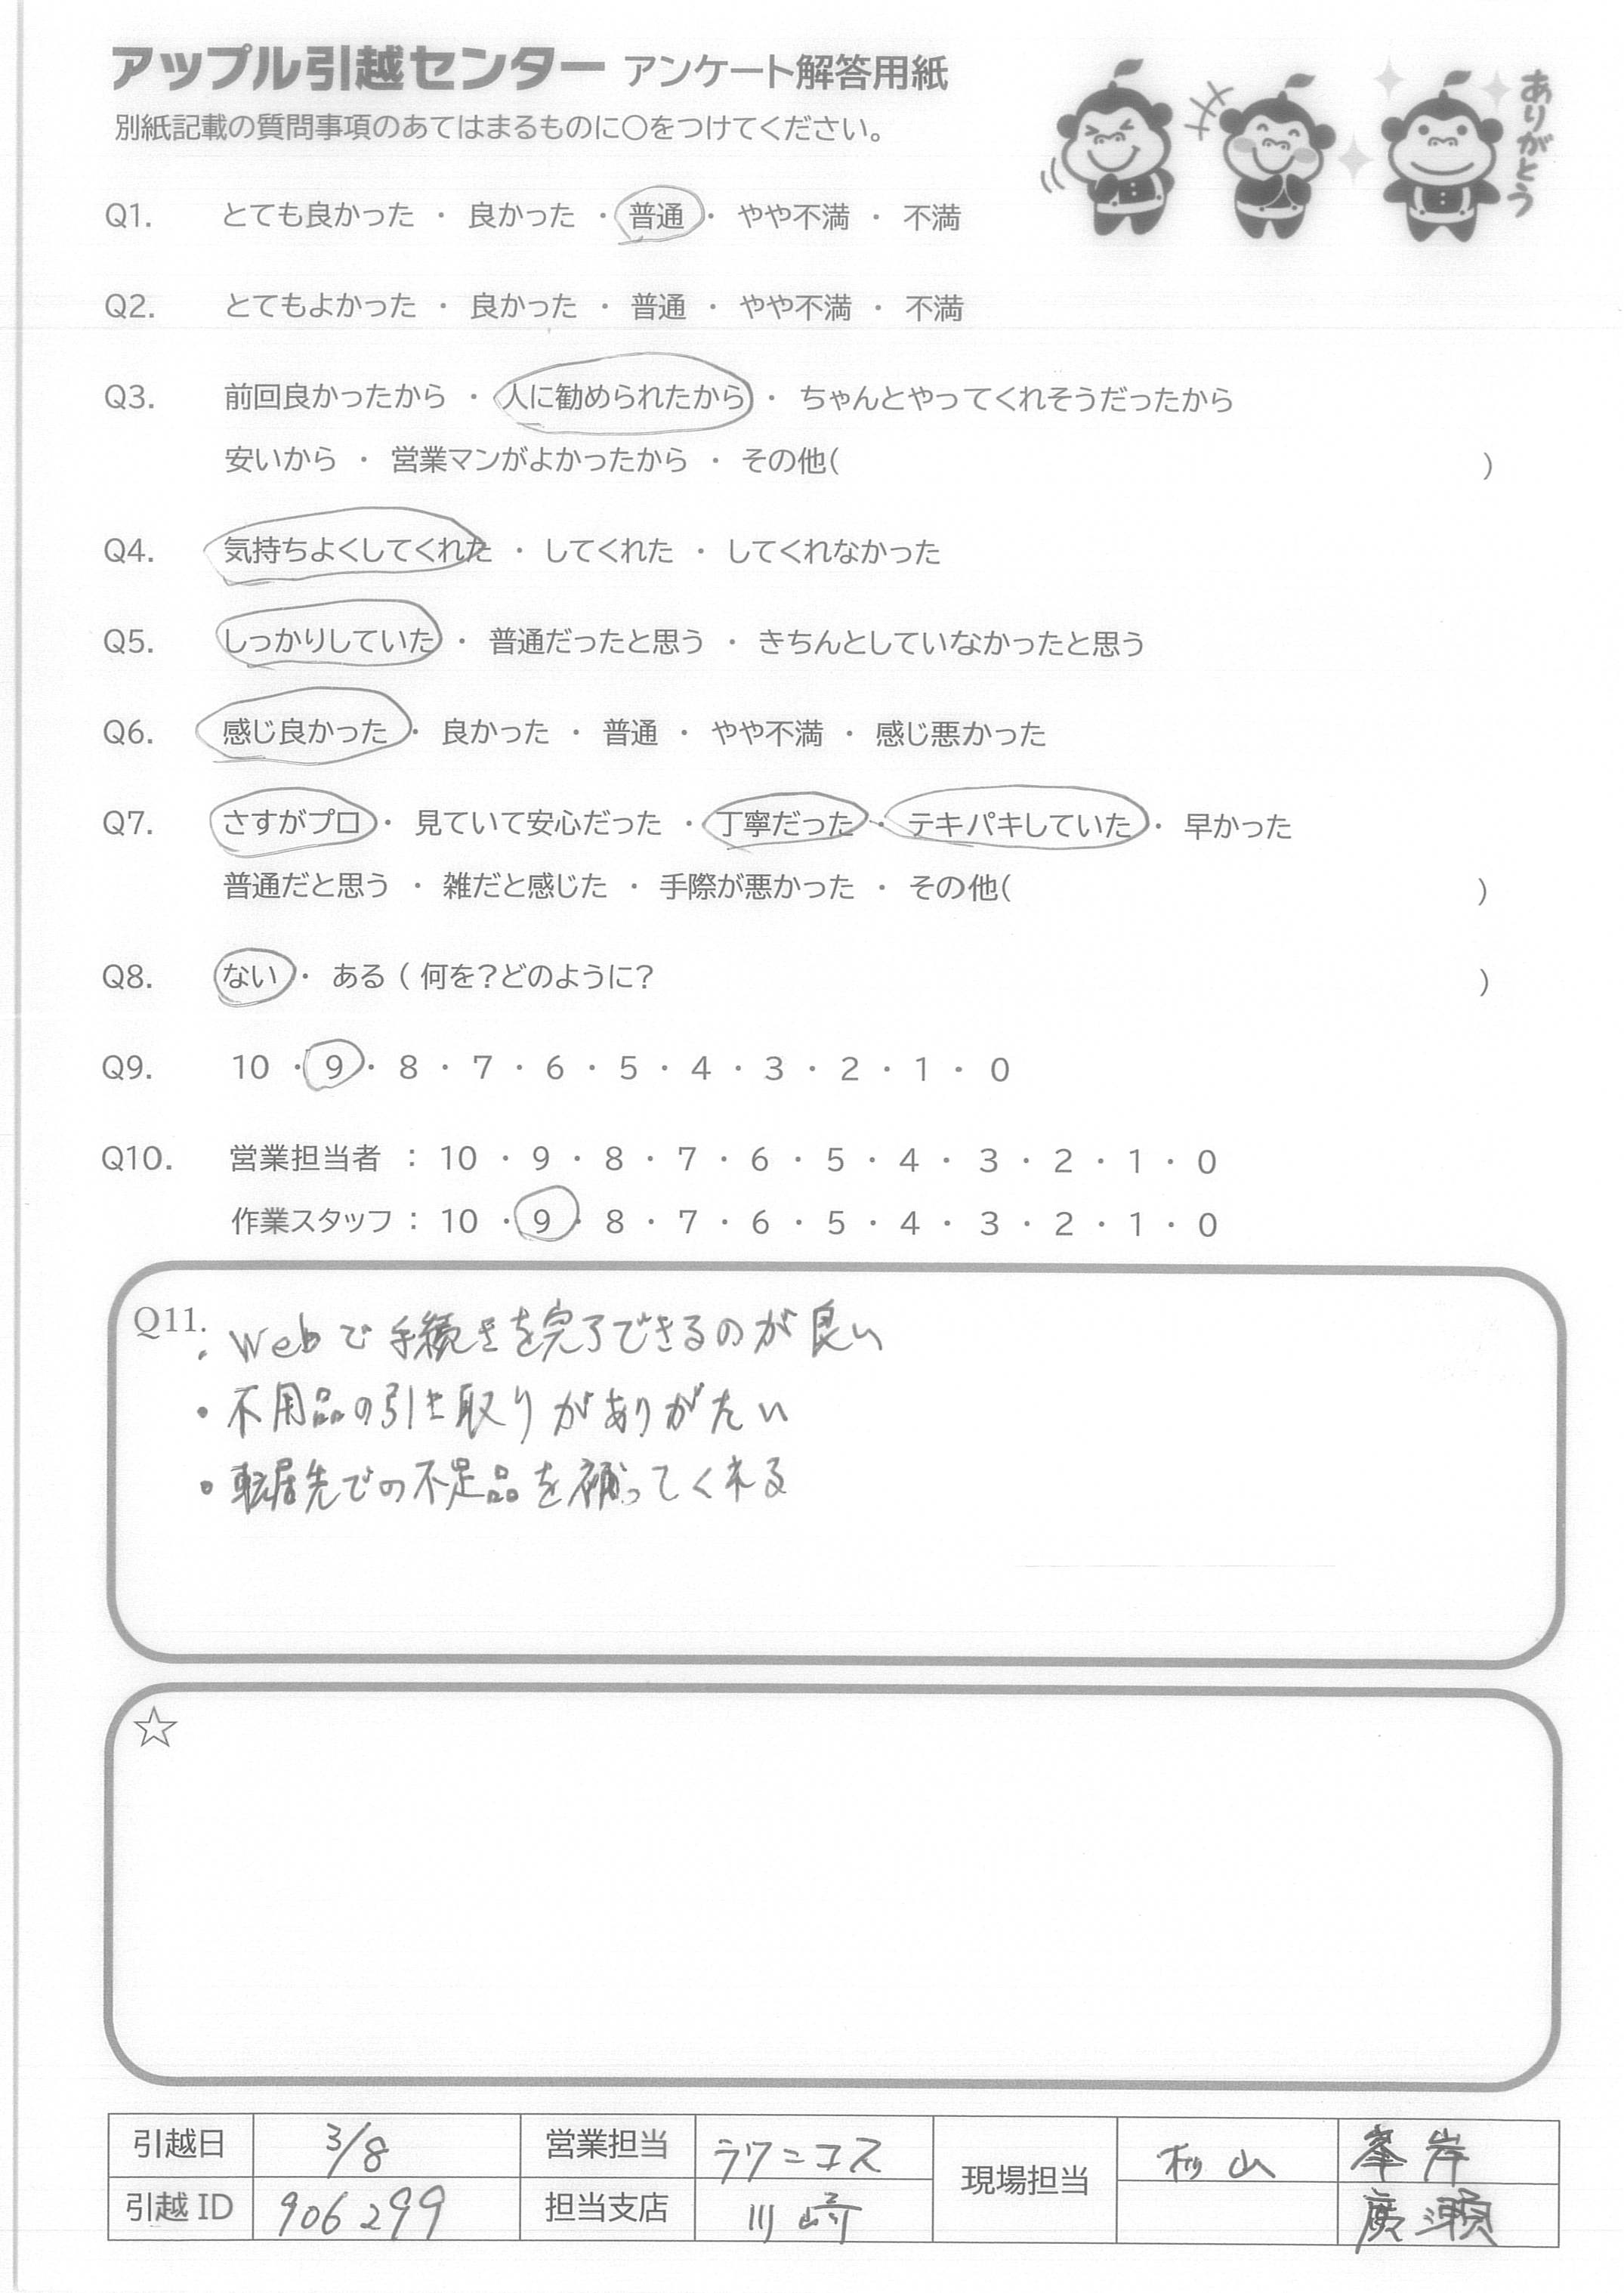 アップル引越センター アンケート解答用紙
別紙記載の質問事項のあてはまるものに○をつけてください。
ありがとう
Q1. とても良かった ・ 良かった ・ 普通 ・ やや不満 ・ 不満
Q2. とてもよかった ・ 良かった ・ 普通 ・ やや不満 ・ 不満
Q3. 前回良かったから ・ 人に勧められたから ・ ちゃんとやってくれそうだったから
安いから ・ 営業マンがよかったから ・ その他( )
Q4. 気持ちよくしてくれた ・ してくれた ・ してくれなかった
Q5. しっかりしていた ・ 普通だったと思う ・ きちんとしていなかったと思う
Q6. 感じ良かった ・ 良かった ・ 普通 ・ やや不満 ・ 感じ悪かった
Q7. さすがプロ ・ 見ていて安心だった ・ 丁寧だった ・ テキパキしていた ・ 早かった
普通だと思う ・ 雑だと感じた ・ 手際が悪かった ・ その他( )
Q8. ない ・ ある ( 何を?どのように? )
Q9. 10 ・ 9 ・ 8 ・ 7 ・ 6 ・ 5 ・ 4 ・ 3 ・ 2 ・ 1 ・ 0
Q10. 営業担当者 : 10 ・ 9 ・ 8 ・ 7 ・ 6 ・ 5 ・ 4 ・ 3 ・ 2 ・ 1 ・ 0
作業スタッフ : 10 ・ 9 ・ 8 ・ 7 ・ 6 ・ 5 ・ 4 ・ 3 ・ 2 ・ 1 ・ 0
Q11.
・Webで手続きを完了できるのが良い
・不用品の引き取りがありがたい
・転居先での不足品を補ってくれる
☆
引越日 3/8 営業担当 ラクニコス 現場担当 杉山 峯岸
引越ID 906299 担当支店 川崎 廣瀬